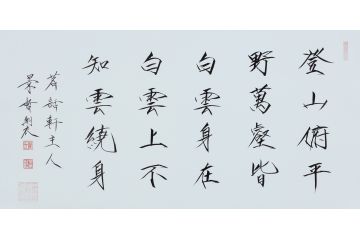 登山俯平
野萬壑皆
白雲身在
白雲上不
知雲繞身
軒主人